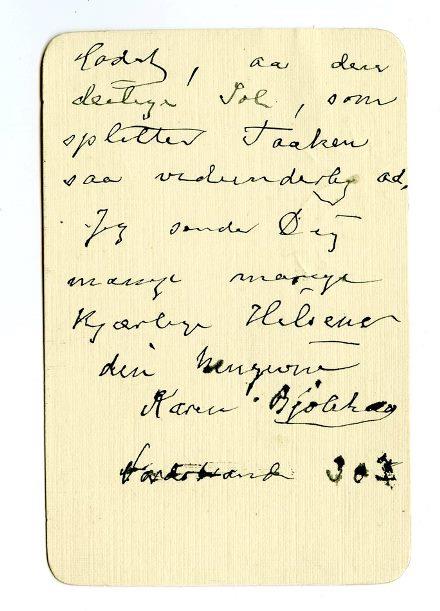 Lodz, aa den
deilige Sol, som
splitter Taaken
saa vidunderlig ad.
Jeg sender Dig
mange mange
Kjærlige Hilsener
din hengivne
Karen
303